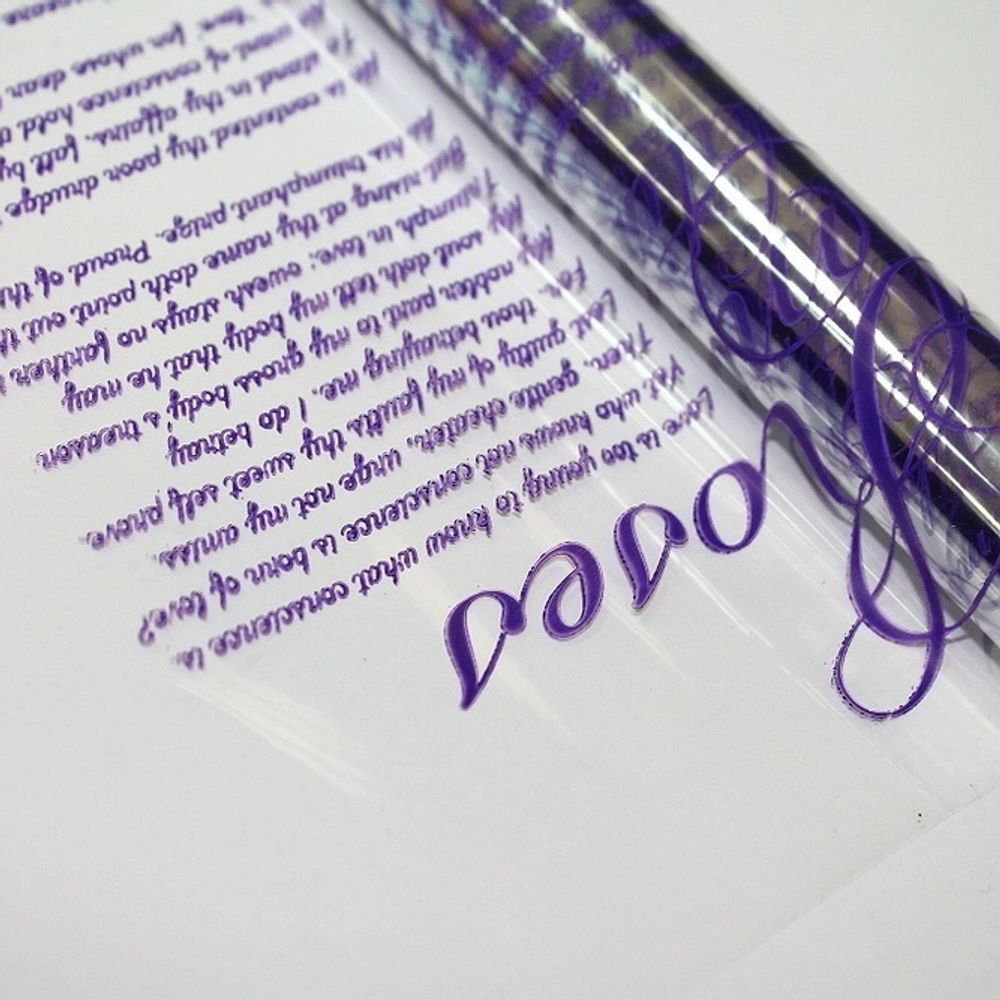 Loves
Love is too young to know what conscience is,
Yet who knows not conscience is born of love?
Then, gentle cheater, urge not my amiss
Lest guilty of my faults thy sweet self prove.
For, thou betraying me, I do betray
My nobler part to my gross body's treason
My soul doth tell my body that he may
Triumph in love; owesh stays no farther
But rising at thy name doth point out
As his triumphant prize. Proud of
He is contented thy poor drudge
To stand in thy affairs, fall by
No want of conscience hold
"love," for whose dear